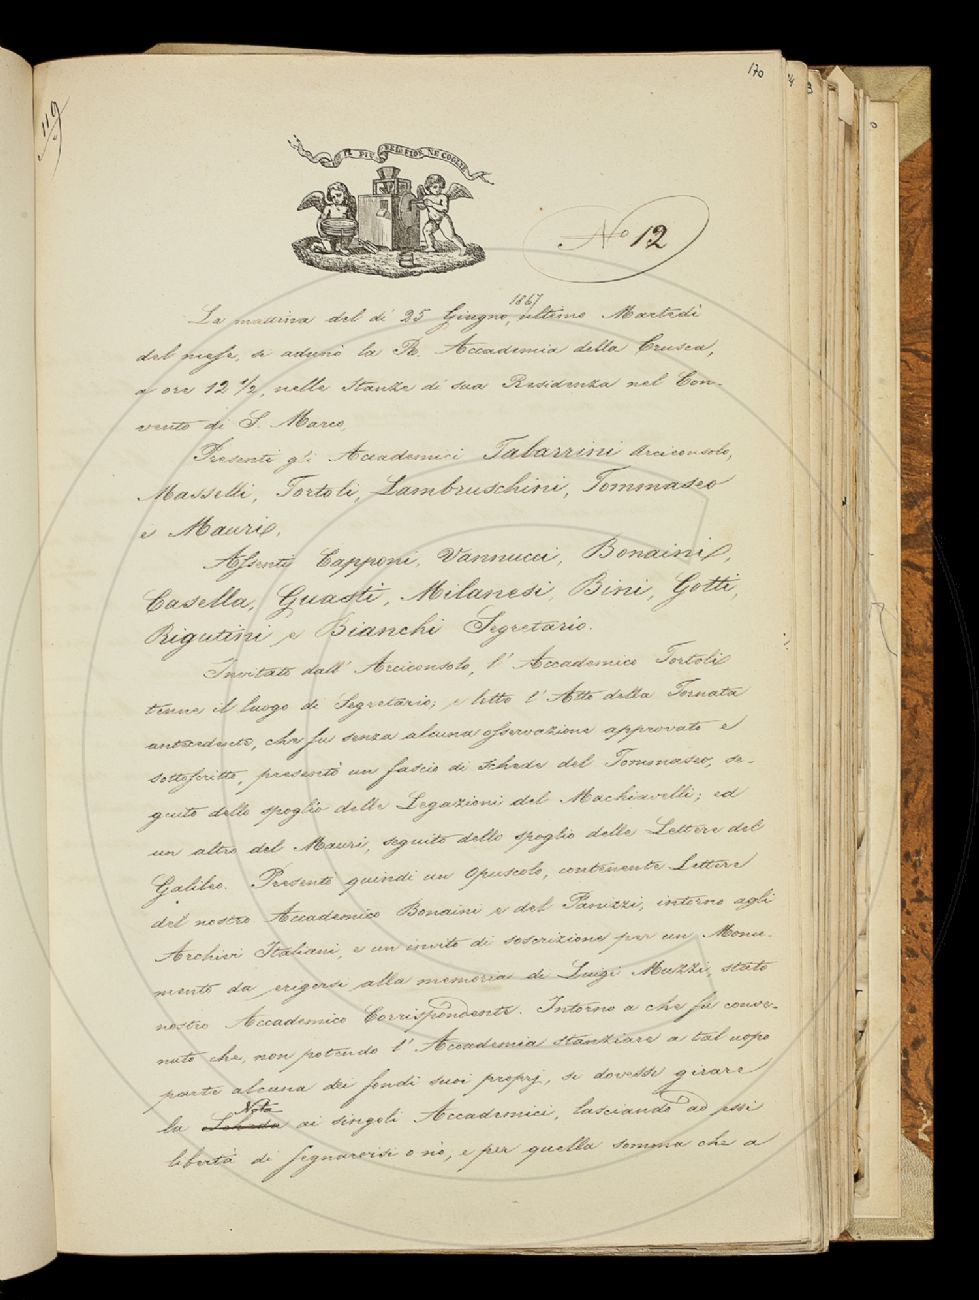 170
119
IL PIÙ BEL FIOR NE COGLIE
No 12
1867
La mattina del dì 25 Giugno, ultimo Martedì
del mese, si adunò la R. Accademia della Crusca,
a ore 12 1/2, nelle Stanze di sua Residenza nel Con-
vento di S. Marco.
Presenti gli Accademici Tabarrini Arciconsolo,
Masselli, Tortoli, Lambruschini, Tommaseo
e Mauri.
Assenti Capponi, Vannucci, Bonaini,
Casella, Guasti, Milanesi, Bini, Gotti,
Rigutini e Bianchi Segretario.
Invitato dall' Arciconsolo, l' Accademico Tortoli
tenne il luogo di Segretario; e letto l' Atto della Tornata
antecedente, che fu senza alcuna osservazione approvato e
sottoscritto, presentò un fascio di schede del Tommaseo, se-
guito dello spoglio delle Legazioni del Machiavelli; ed
un altro del Mauri, seguito dello spoglio delle Lettere del
Galileo. Presentò quindi un Opuscolo, contenente Lettere
del nostro Accademico Bonaini e del Panizzi, intorno agli
Archivi Italiani, e un invito di soscrizione per un Monu-
mento da erigersi alla memoria di Luigi Muzzi, stato
nostro Accademico Corrispondente. Intorno a che fu conve-
nuto che, non potendo l' Accademia stanziare a tal uopo
parte alcuna dei fondi suoi proprj, si dovesse girare
Nota
la Scheda ai singoli Accademici, lasciando ad essi
libertà di segnarvisi o no, e per quella somma che a